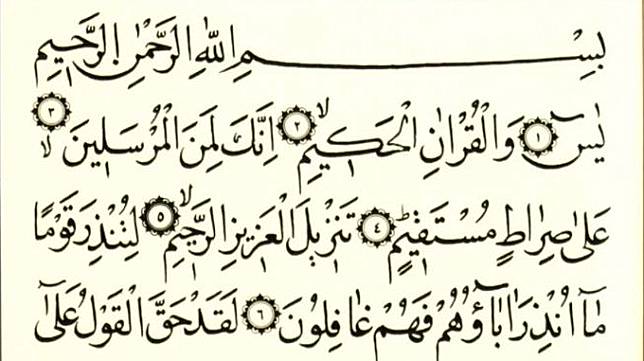 بِسْمِ اللّٰهِ الرَّحْمٰنِ الرَّحٖيمِ
يٰسٓ ﴿١﴾ وَالْقُرْاٰنِ الْحَكٖيمِۙ ﴿٢﴾ اِنَّكَ لَمِنَ الْمُرْسَلٖينَۙ ﴿٣﴾
عَلٰى صِرَاطٍ مُسْتَقٖيمٍؕ ﴿٤﴾ تَنْزٖيلَ الْعَزٖيزِ الرَّحٖيمِۙ ﴿٥﴾ لِتُنْذِرَ قَوْمًا
مَٓا اُنْذِرَ اٰبَٓاؤُ۬هُمْ فَهُمْ غَافِلُونَ ﴿٦﴾ لَقَدْ حَقَّ الْقَوْلُ عَلٰٓى